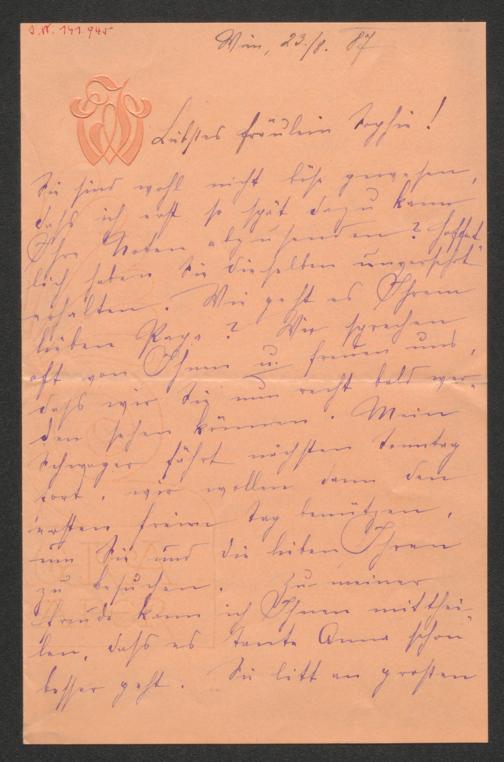 I.N. 141.945
Wien, 23./8. 87
Liebstes Fräulein Sophie!
Sie sind wohl nicht böse gewesen,
dass ich erst so spät dazu kam
Ihre Noten abzusenden? Hoffent
lich haben Sie dieselben unversehrt
erhalten. Wie geht es Ihrem
lieben Papa? Wir sprechen
oft von Ihnen u. freuen uns,
dass wir Sie nun recht bald wer-
den sehen können. Mein
Schwager fährt nächsten Sonntag
fort, wir wollen dann den
ersten freien Tag benützen,
um Sie und die lieben Ihren
zu besuchen. Zu meiner
Freude kann ich Ihnen mitthei-
len, dass es Tante Anna schon
besser geht. Sie litt an grossen